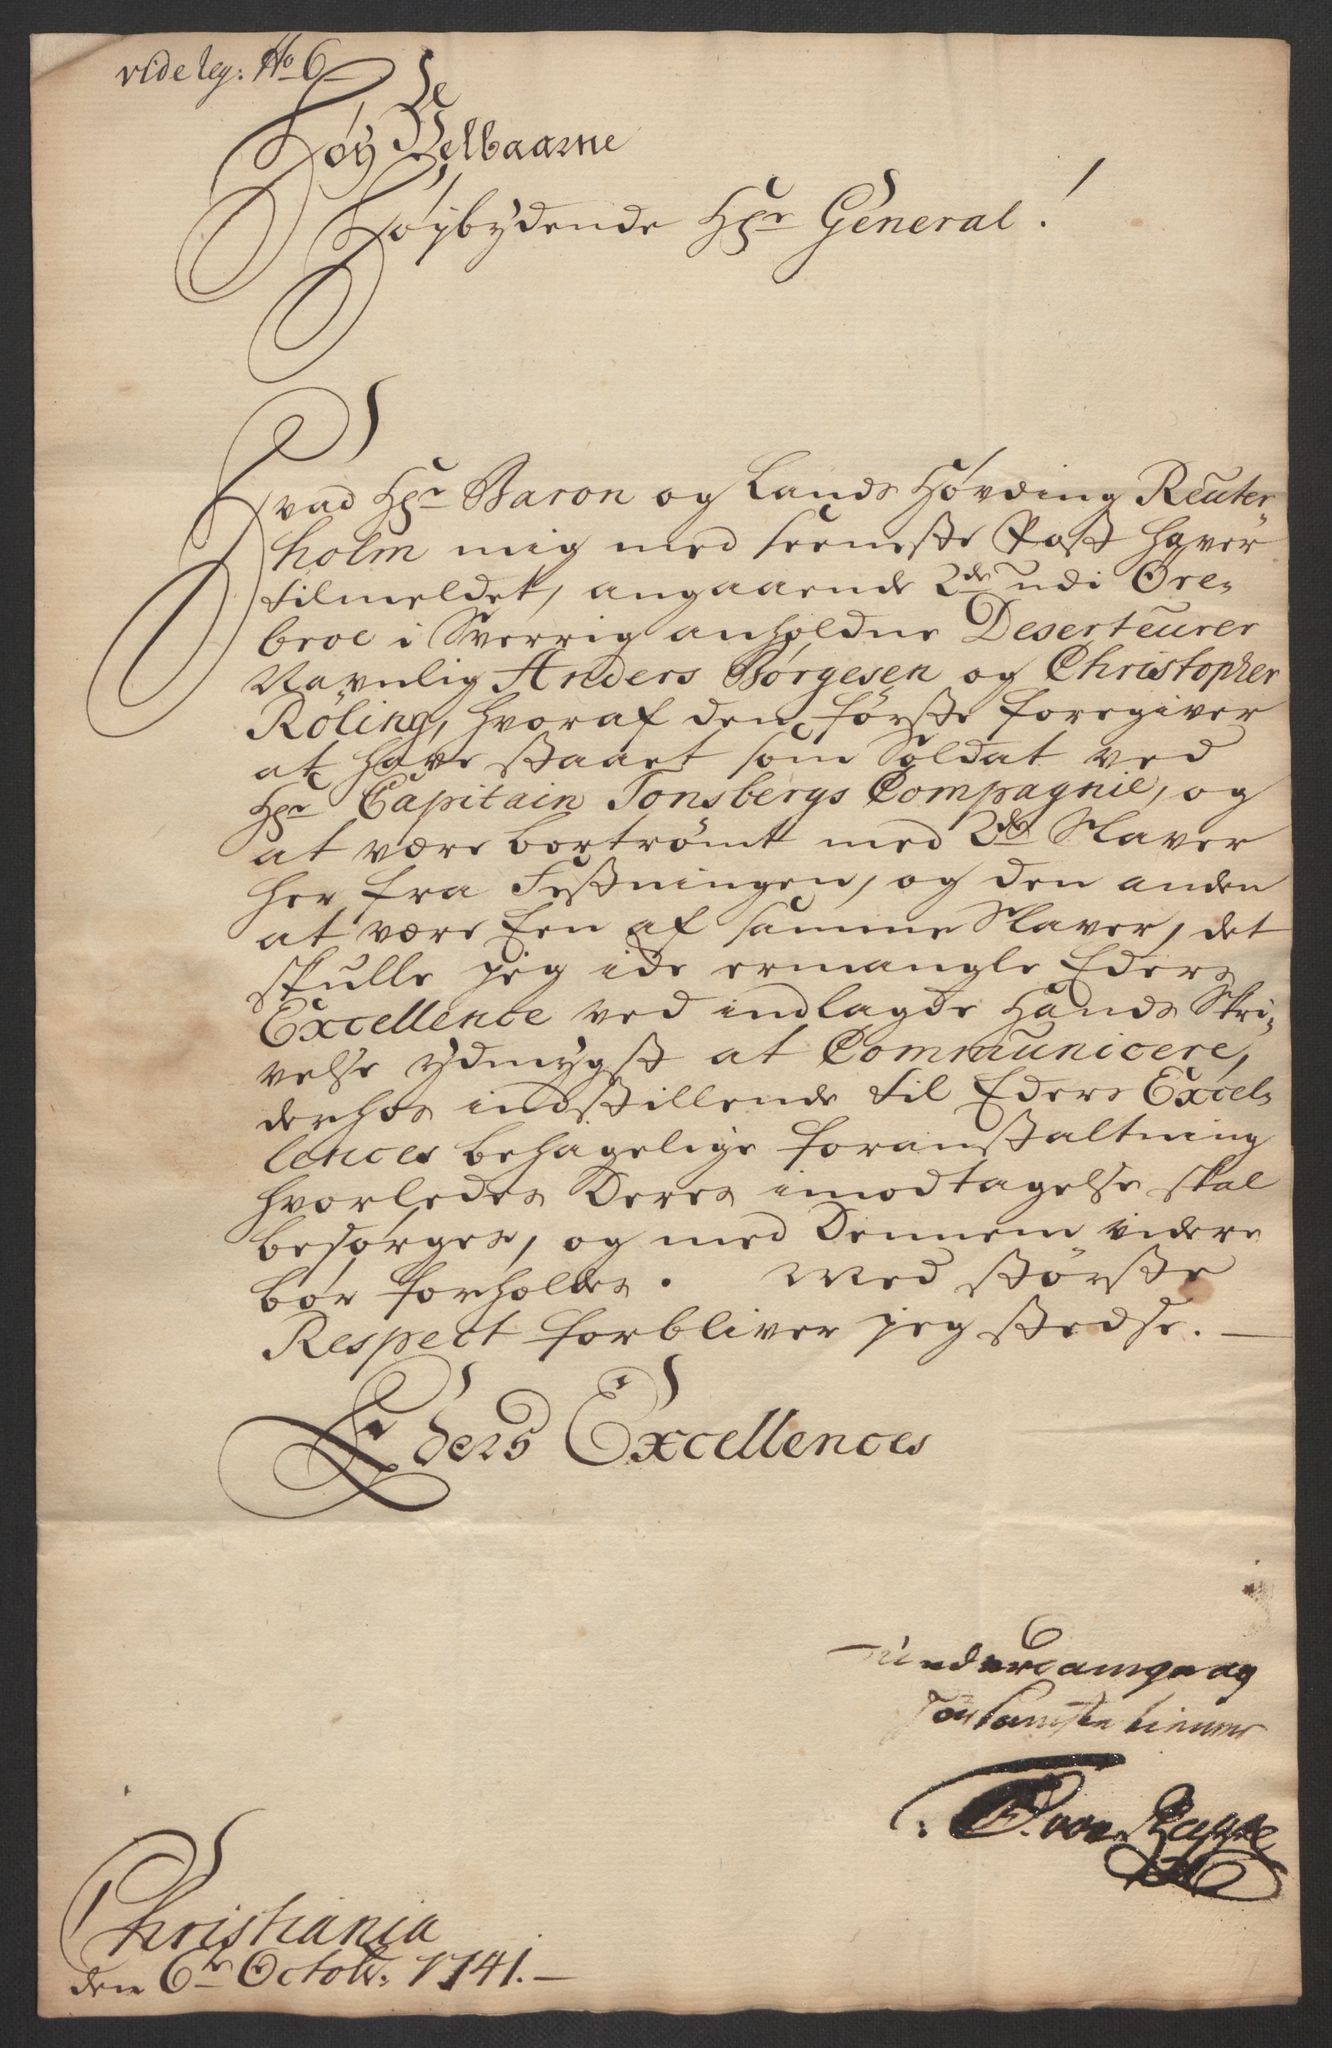 vide leg: No 6
Høy Velbaarne
Høybydende Hr General!
Hvad Hr Baron og Lands Høvding Reuter-
holm mig med seeneste Post haver
tilmeldet, angaaende 2de udi Øre-
broe i Sverrig anholdne Deserteurer
Navnlig Anders Børgesen og Christopher
Röling, hvoraf den første foregiver
at have staaet som Soldat ved
Hr Capitain Tonsbergs Compagnie, og
at være bortrømt med 2de Slaver
her fra Festningen, og den anden
at være Een af samme Slaver, det
skulle jeg icke ermangle Eders
Excellence ved indlagde Hands Skri-
velse ydmygst at Communicere,
derhos indstillende til Eders Excel-
lences behagelige foranstaltning
hvorledes Deres imodtagelse skal
besørges, og med Dennem videre
bør forholdes. Med største
Respect forbliver jeg stedse.
Eders Excellences
underdanige og
tienner
von Rappe
Christiania
den 6te Octobr: 1741.